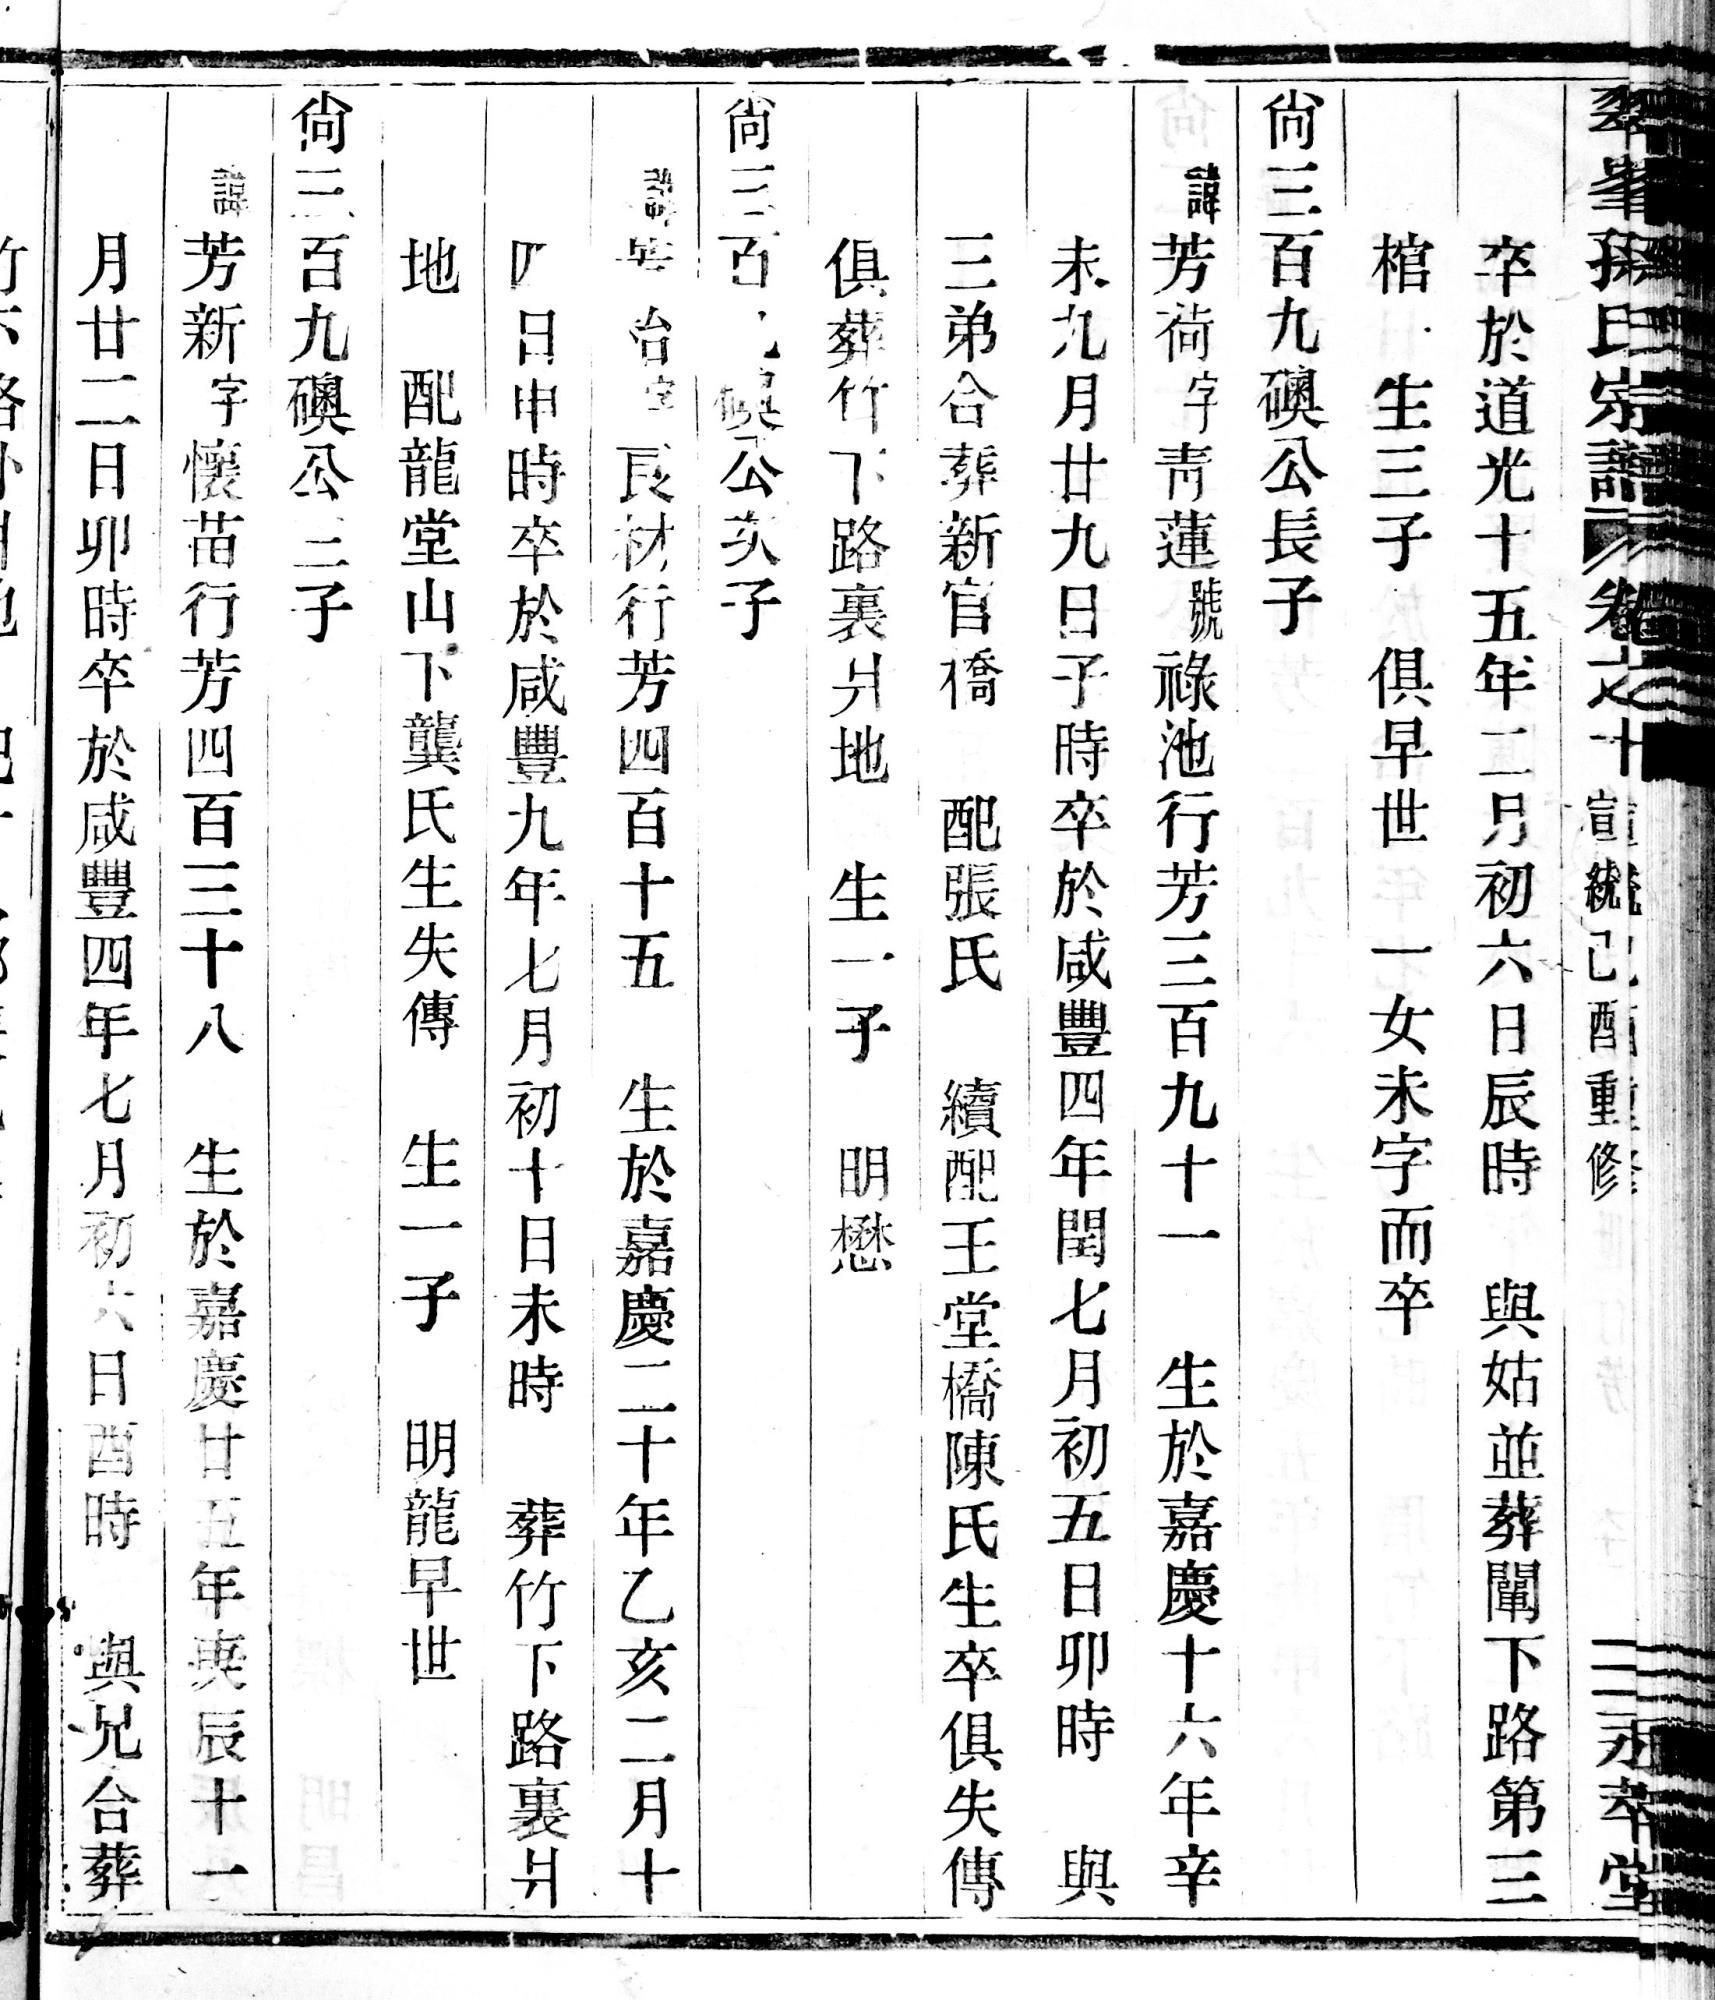 翠峯孫氏宗譜 卷之十 宣統己酉重修 三 永萃堂
卒於道光十五年二月初六日辰時 與姑並葬闈下路第三
棺 生三子 俱早世 一女未字而卒
尙三百九礇公長子
諱芳荷字青蓮號祿池行芳三百九十一 生於嘉慶十六年辛
未九月廿九日子時卒於咸豐四年閏七月初五日卯時 與
三弟合葬新官橋 配張氏 續配王堂橋陳氏生卒俱失傳
俱葬竹下路裏爿地 生一子 明懋
尙三百 礇公次子
諱 治字良材行芳四百十五 生於嘉慶二十年乙亥二月十
四日申時卒於咸豐九年七月初十日未時 葬竹下路裏爿
地 配龍堂山下龔氏生失傳 生一子 明龍早世
尙三百九礇公三子
諱芳新字懷苗行芳四百三十八 生於嘉慶廿五年庚辰十一
月廿二日卯時卒於咸豐四年七月初六日酉時 與兄合葬